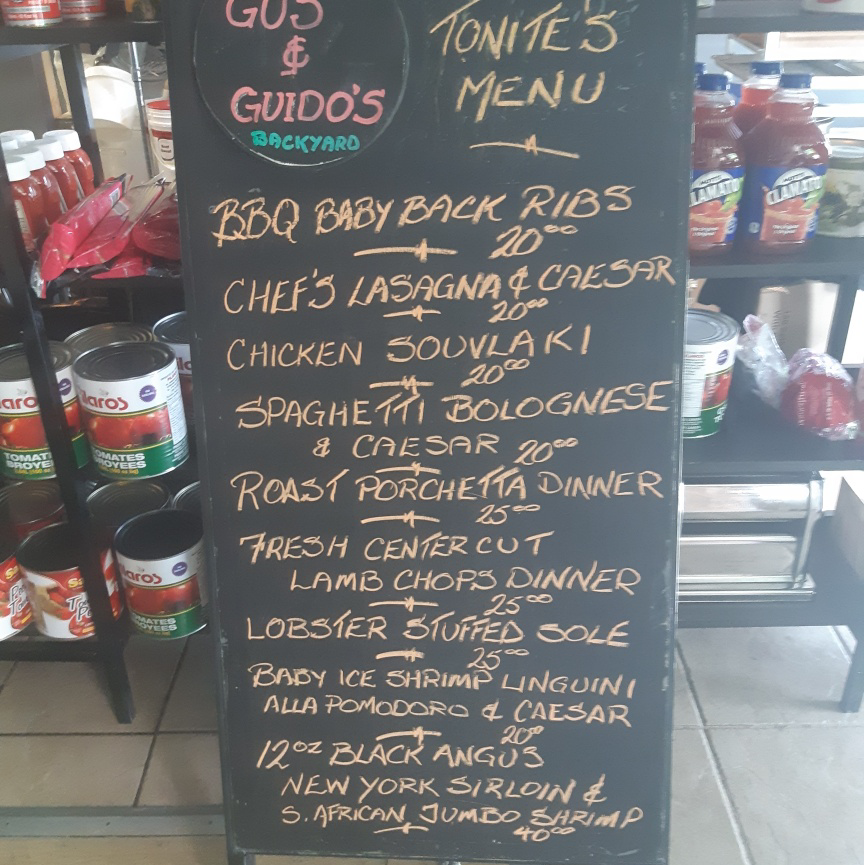 GUS
&
GUIDO'S
BACKYARD
TONITE'S
MENU
BBQ BABY BACK RIBS
20⁰⁰
CHEF'S LASAGNA & CAESAR
20⁰⁰
CHICKEN SOUVLAKI
20⁰⁰
SPAGHETTI BOLOGNESE
& CAESAR 20⁰⁰
ROAST PORCHETTA DINNER
25⁰⁰
FRESH CENTER CUT
LAMB CHOPS DINNER
25⁰⁰
LOBSTER STUFFED SOLE
25⁰⁰
BABY ICE SHRIMP LINGUINI
ALLA POMODORO & CAESAR
20⁰⁰
12OZ BLACK ANGUS
NEW YORK SIRLOIN &
S. AFRICAN JUMBO SHRIMP
40⁰⁰
TOMATES
BROYEES
TOMATES
BROYEES